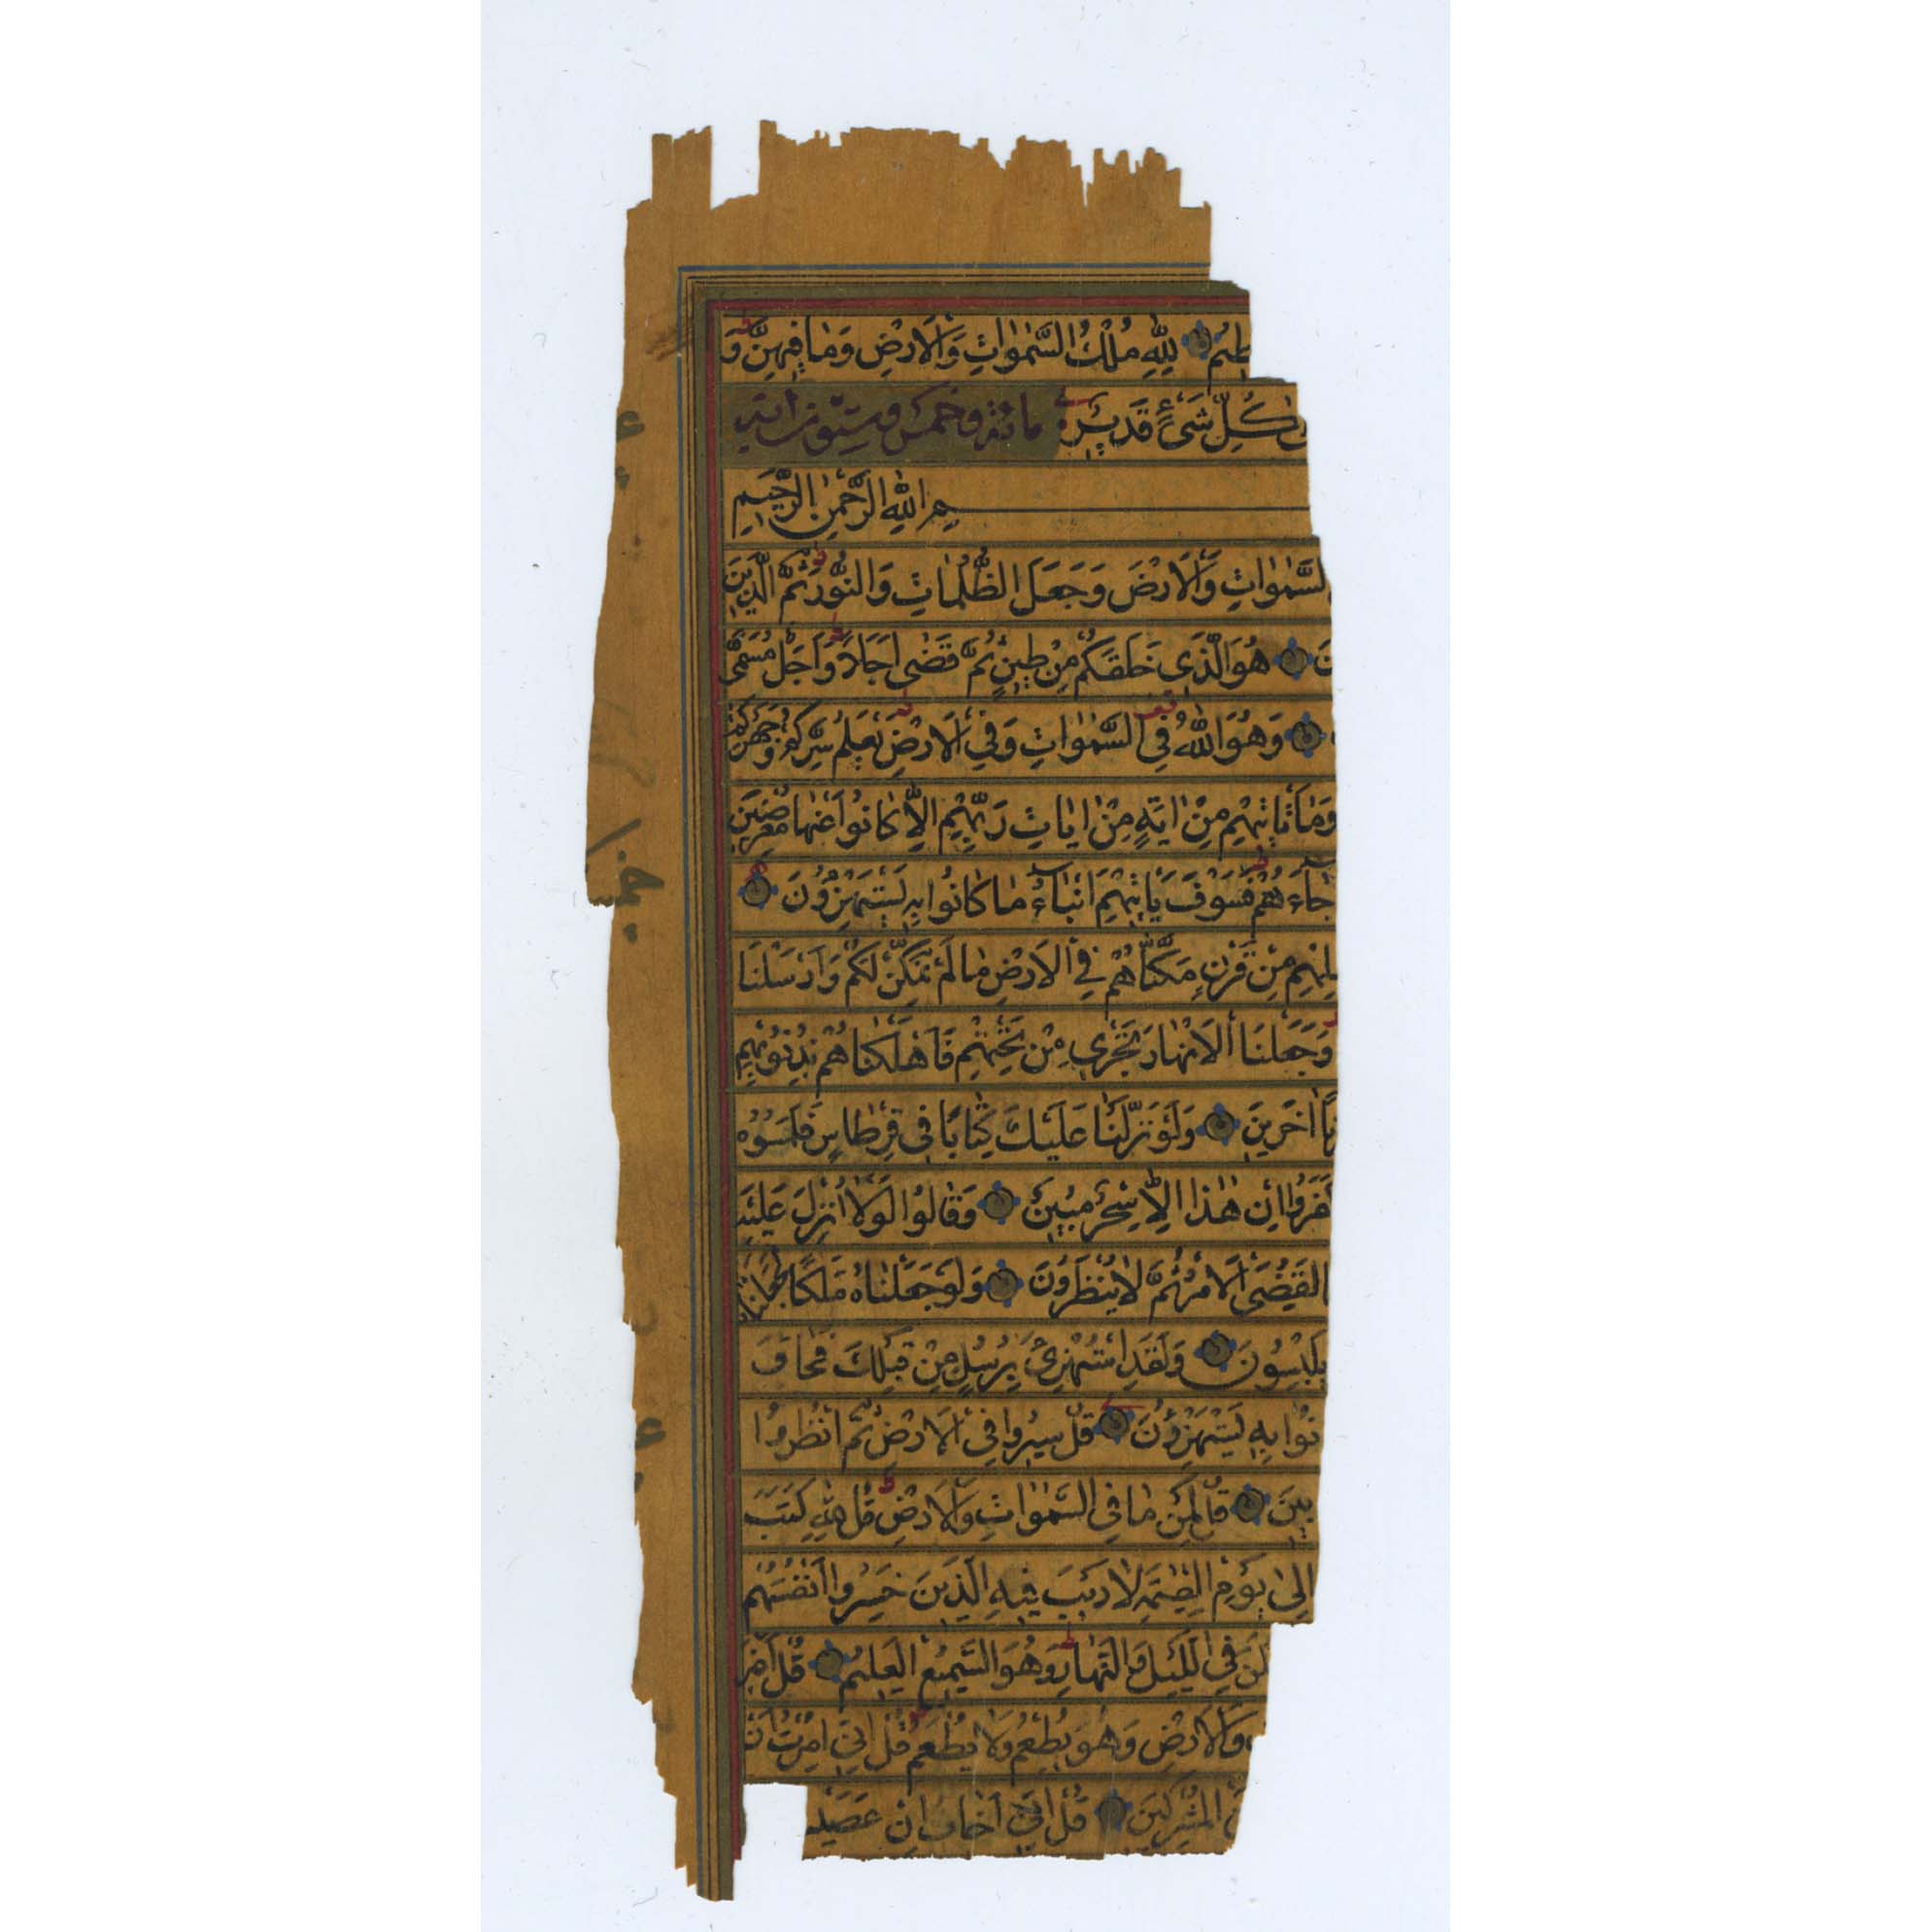 ظيمُ لِلّٰهِ مُلْكُ السَّمٰوٰاتِ وَالْاَرْضِ وَمٰا فِيهِنَّ وَ
كُلِّ شَيْءٍ قَدِيرٌ مائة وخمس وستون اية
مِ اللّٰهِ الرَّحْمٰنِ الرَّحِيمِ
السَّمٰوٰاتِ وَالْاَرْضَ وَجَعَلَ الظُّلُمٰاتِ وَالنُّورَ ثُمَّ الَّذِينَ
نَ هُوَ الَّذِي خَلَقَكُمْ مِنْ طِينٍ ثُمَّ قَضٰى اَجَلًا وَاَجَلٌ مُسَمًّى
وَهُوَ اللّٰهُ فِي السَّمٰوٰاتِ وَفِي الْاَرْضِ يَعْلَمُ سِرَّكُمْ وَجَهْرَكُمْ
وَمٰا تَاْتِيهِمْ مِنْ اٰيَةٍ مِنْ اٰيٰاتِ رَبِّهِمْ اِلّٰا كٰانُوا عَنْهٰا مُعْرِضِينَ
جٰاءَهُمْ فَسَوْفَ يَاْتِيهِمْ اَنْبٰاءُ مٰا كٰانُوا بِهِ يَسْتَهْزِؤُنَ
لِهِمْ مِنْ قَرْنٍ مَكَّنّٰاهُمْ فِي الْاَرْضِ مٰا لَمْ نُمَكِّنْ لَكُمْ وَاَرْسَلْنَا
وَجَعَلْنَا الْاَنْهٰارَ تَجْرِي مِنْ تَحْتِهِمْ فَاَهْلَكْنٰاهُمْ بِذُنُوبِهِمْ
نًا اٰخَرِينَ وَلَوْ نَزَّلْنٰا عَلَيْكَ كِتٰابًا فِي قِرْطٰاسٍ فَلَمَسُوهُ
فَرُوا اِنْ هٰذٰا اِلّٰا سِحْرٌ مُبِينٌ وَقٰالُوا لَوْلٰا اُنْزِلَ عَلَيْهِ
لَقُضِيَ الْاَمْرُ ثُمَّ لٰا يُنْظَرُونَ وَلَوْ جَعَلْنٰاهُ مَلَكًا لَجَعَلْنٰاهُ
يَلْبِسُونَ وَلَقَدِ اسْتُهْزِئَ بِرُسُلٍ مِنْ قَبْلِكَ فَحٰاقَ
نُوا بِهِ يَسْتَهْزِؤُنَ قُلْ سِيرُوا فِي الْاَرْضِ ثُمَّ انْظُرُوا
بِينَ قُلْ لِمَنْ مٰا فِي السَّمٰوٰاتِ وَالْاَرْضِ قُلْ لِلّٰهِ كَتَبَ
اِلٰى يَوْمِ الْقِيٰمَةِ لٰا رَيْبَ فِيهِ الَّذِينَ خَسِرُوا اَنْفُسَهُمْ
كَنَ فِي اللَّيْلِ وَالنَّهٰارِ وَهُوَ السَّمِيعُ الْعَلِيمُ قُلْ اَغَيْرَ
وَالْاَرْضِ وَهُوَ يُطْعِمُ وَلٰا يُطْعَمُ قُلْ اِنِّي اُمِرْتُ اَنْ
نَ الْمُشْرِكِينَ قُلْ اِنِّي اَخٰافُ اِنْ عَصَيْتُ